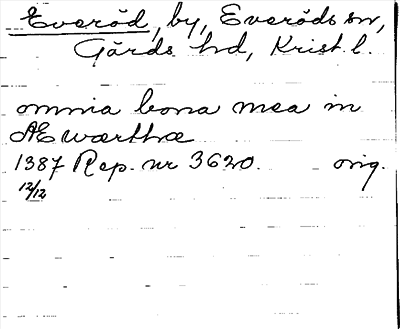 Everöd, by, Everöds sn,
Gärds hd, Krist. l.
omnia bona mea in
Æwærthæ
1387 Rep. nr 3620. orig.
12/12